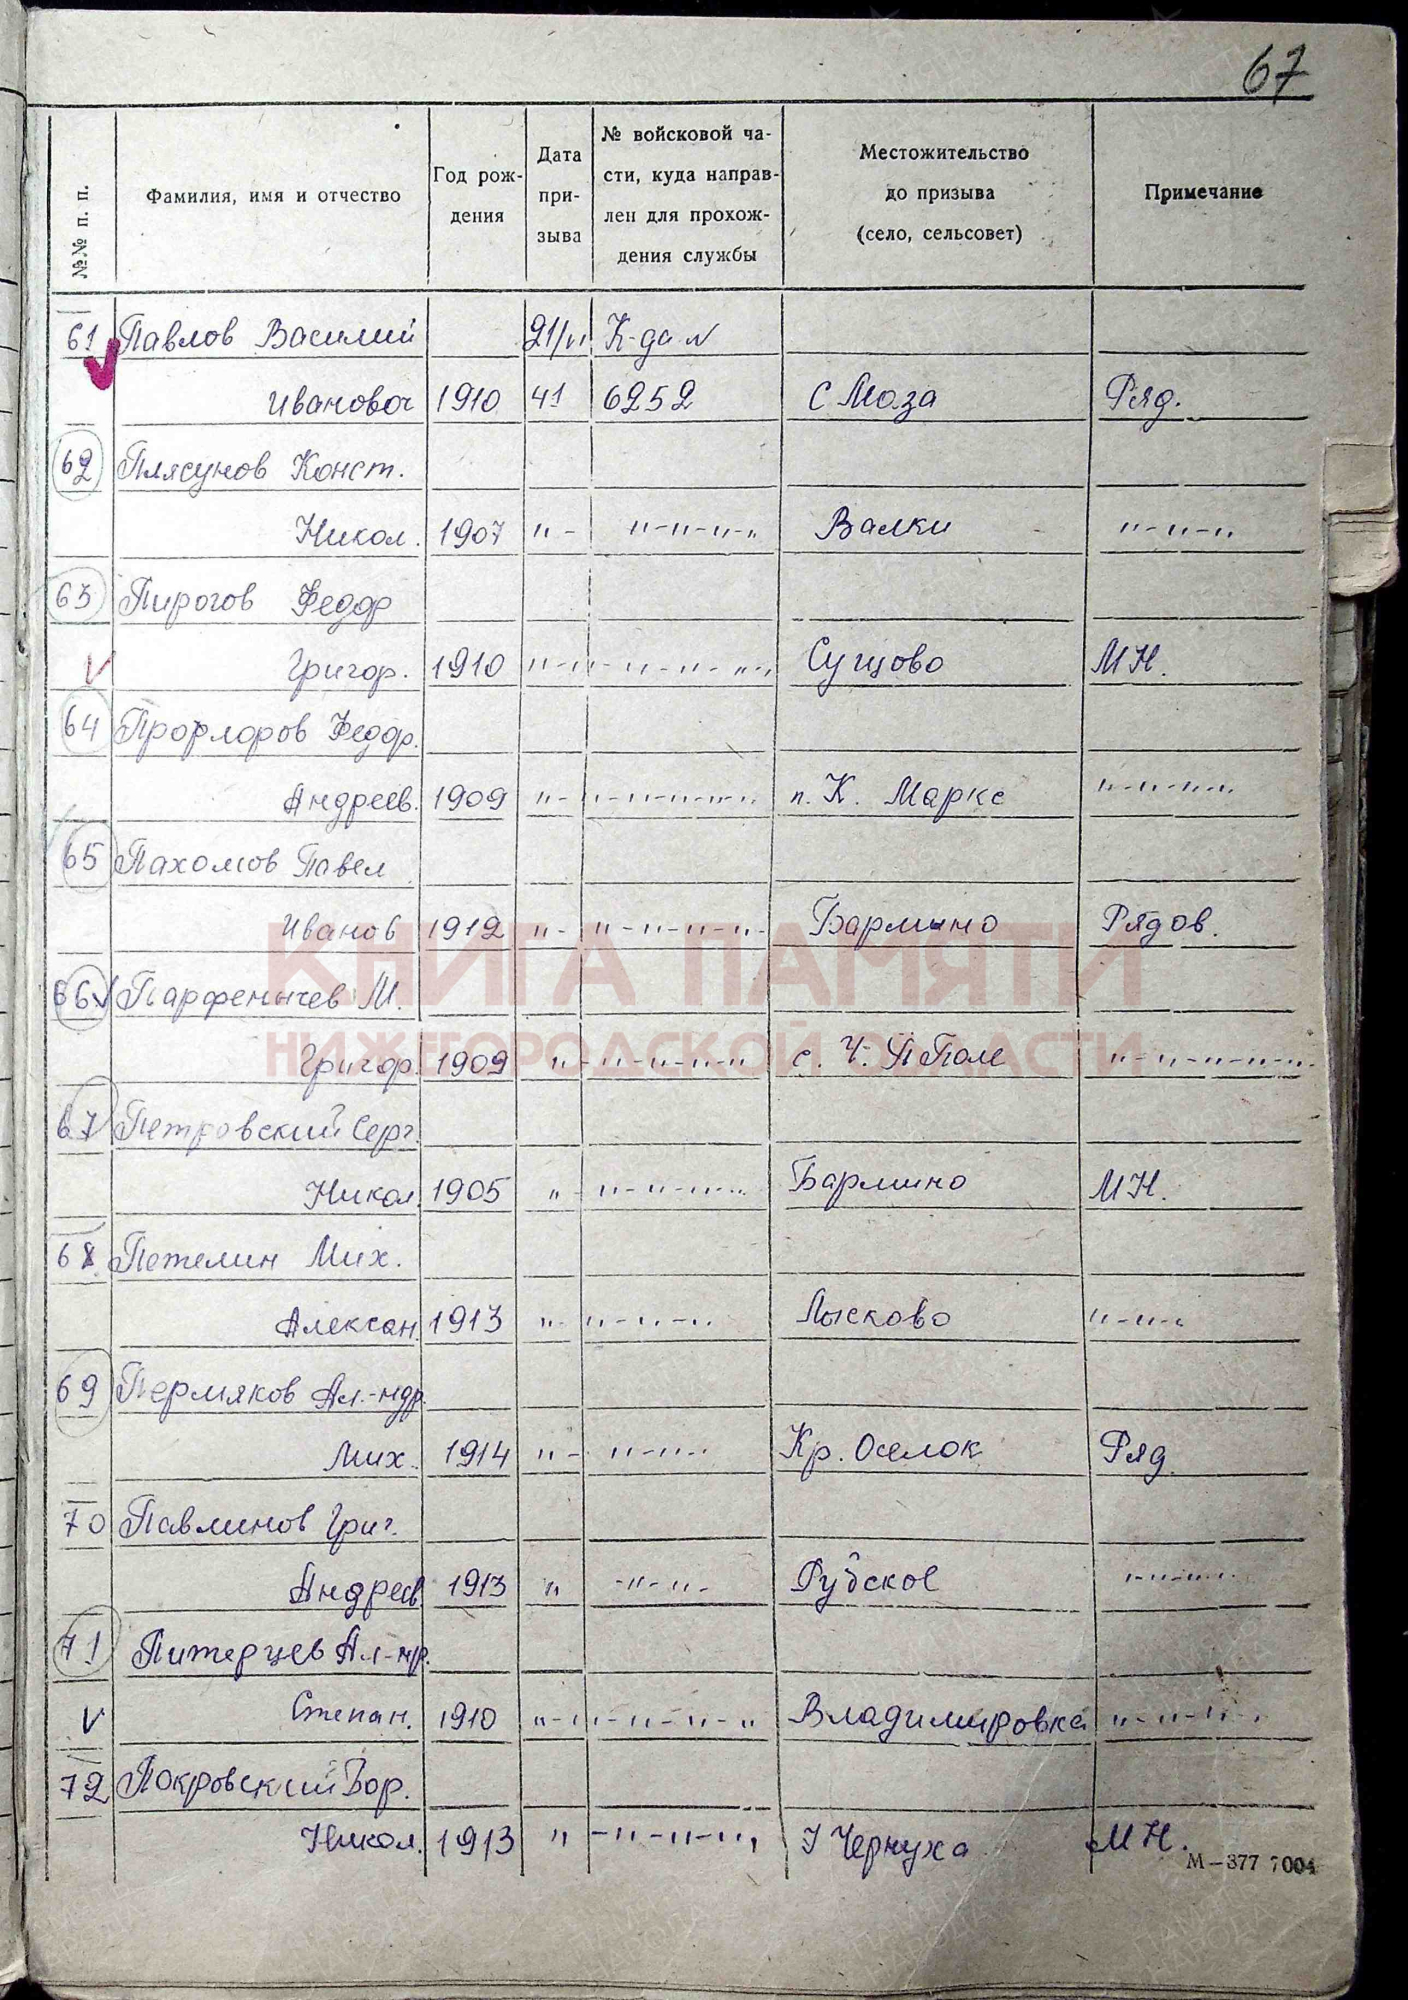 67
№№ п. п.
Фамилия, имя и отчество
Год рож-
дения
Дата
при-
зыва
№ войсковой ча-
сти, куда направ-
лен для прохож-
дения службы
Местожительство
до призыва
(село, сельсовет)
Примечание
61 Павлов Василий 21/VI К-да N
Иванович 1910 41 6252 с Моза Ряд.
62 Плясунов Конст.
Никол. 1907 "- "-"-"-" Валки "-"-"
63 Пирогов Федор
Григор. 1910 "-"-"-"-"-" Сущово МН.
64 Федор.
Андреев. 1909 "-"-"-"-"-" п. К. Маркс "-"-"-"
65 Пахомов Павел
Иванов 1912 "- "-"-"-"- Бармино Рядов.
66 Парфенычев М.
Григор. 1909 "-"-"-"-" с. Ч. Поле "-"-"-"-"
67 Петровский Серг.
Никол. 1905 "- "-"-"-" Бармино МН.
68 Петелин Мих.
Алексан. 1913 "- "-"-" Лысково "-"-"
69 Пермяков Ал-ндр.
Мих. 1914 "- "-"-" Кр. Оселок Ряд.
70 Павлинов Григ.
Андреев 1913 " -"-"- Рубское "-"-"
71 Питерцев Ал-нр.
Степан. 1910 "-"-"-"-" Владимировка "-"-"-"
72 Покровский Бор.
Никол. 1913 " -"-"-" Чернуха МН.
М—377 7004
КНИГА ПАМЯТИ
НИЖЕГОРОДСКОЙ ОБЛАСТИ